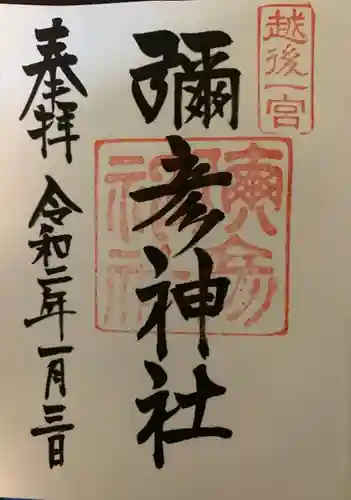 越後一宮
彌彦神社
奉拝
令和二年一月三日